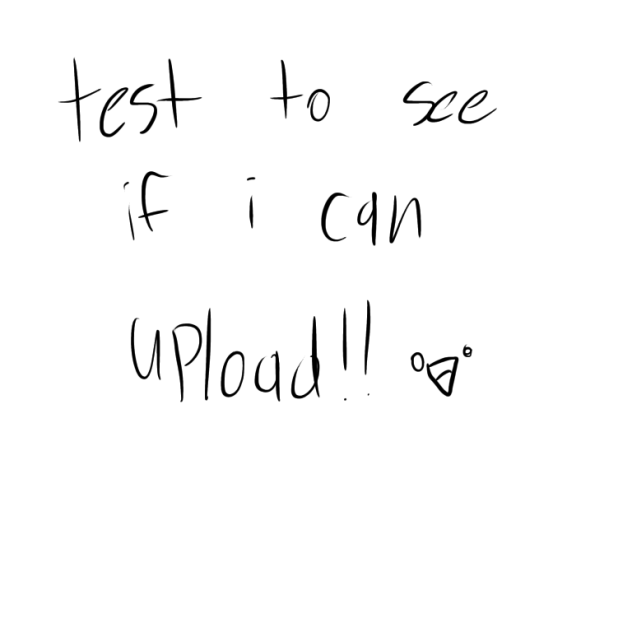 test to see
if i can
upload!!